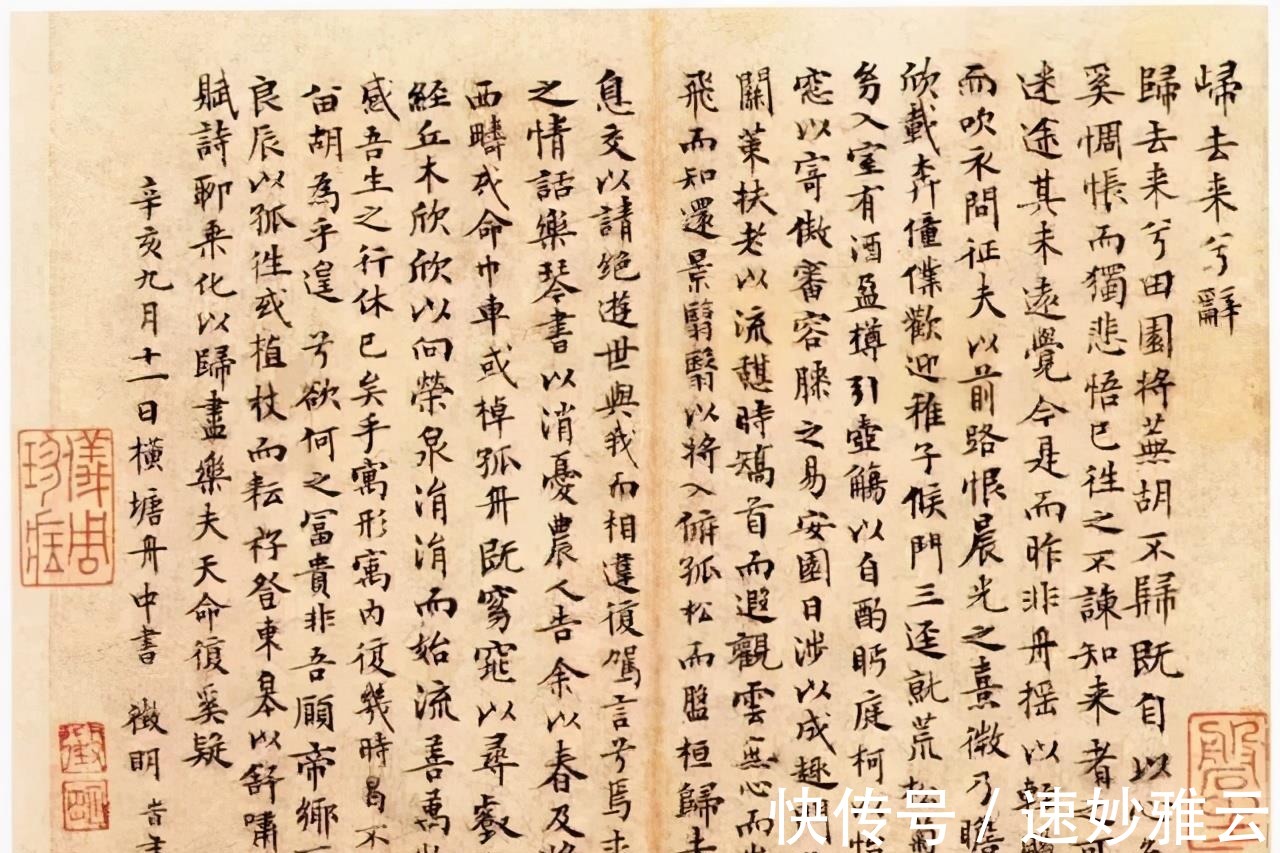 歸去来兮辭
歸去来兮田園将蕪胡不歸既自以
奚惆悵而獨悲悟已往之不諫知来者
迷途其未遠覺今是而昨非舟揺以軽
而吹衣問征夫以前路恨晨光之熹微乃瞻
欣載奔僮僕歡迎稚子候門三逕就荒松菊
㓜入室有酒盈樽引壺觴以自酌眄庭柯
窓以寄傲審容膝之易安園日渉以成趣門
關策扶老以流憇時矯首而遐觀雲無心而出
飛而知還景翳翳以将入撫孤松而盤桓歸去
息交以請絶遊世與我而相違復駕言兮焉求
之情話樂琴書以消憂農人告余以春及将
西疇或命巾車或棹孤舟既窈窕以尋壑
經丘木欣欣以向榮泉涓涓而始流善萬
感吾生之行休已矣乎寓形寓内復幾時曷不
留胡為乎遑兮欲何之冨貴非吾願帝鄉
良辰以孤往或植杖而耘耔登東皋以舒嘯
賦詩聊乗化以歸盡樂夫天命復奚疑
辛亥九月十一日横塘舟中書 徵明
儀周珍藏
徵明
快传号/速妙雅云